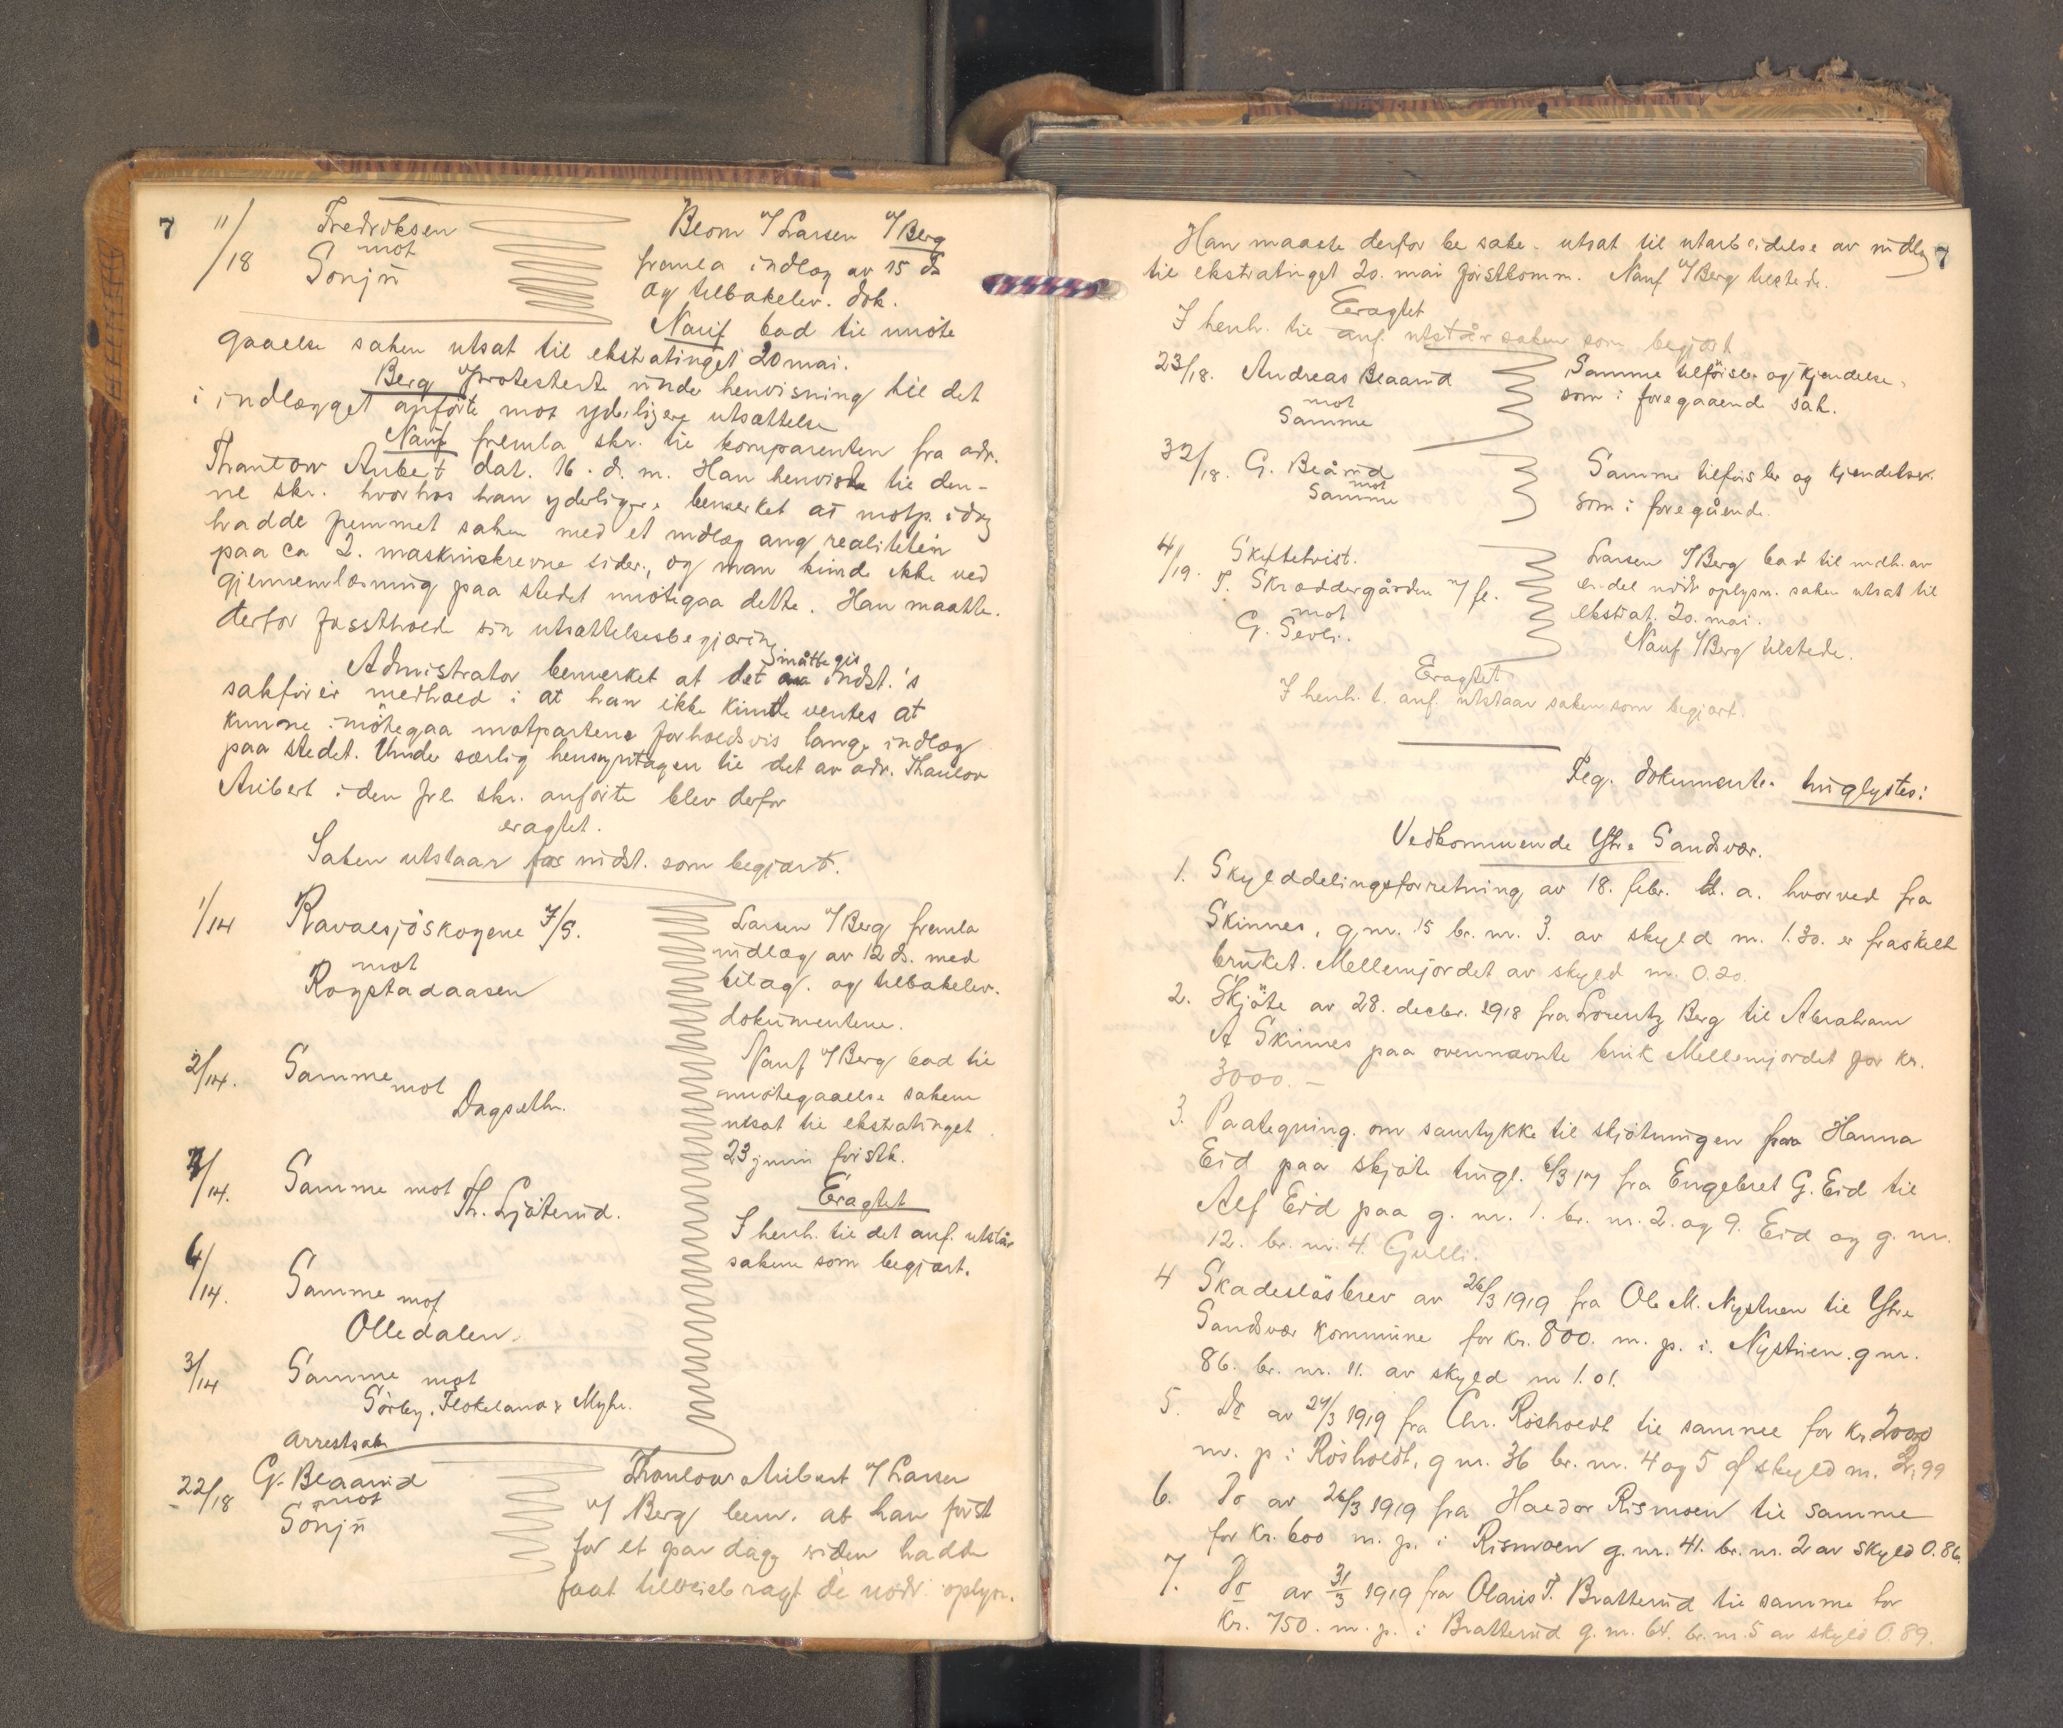 7
11/18
Fredriksen
mot
Sönju
Blom v/ Larsen v/ Berg
fremla indlæg av 15 ds
og tilbakelev. dok.
Nauf bad til imöte
gaaelse saken utsat til ekstratinget 20 mai.
Berg protesterte under henvisning til det
i indlægget anförte mot yderligere utsættelse
Nauf fremla skr. til komparenten fra adv.
Thaulow Aubert dat. 16. d. m. Han henviste til den-
ne skr. hvorhos han yderligere bemerket at motp. idag
hadde fremmet saken med et indlæg ang realiteten
paa ca 2. maskinskrevne sider, og man kunde ikke ved
gjennemlæsning paa stedet imötegaa dette. Han maatte
derfor fastholde sin utsættelsesbegjæring
Admistrator bemerket at det måtte gis indst.'s
sakförer medhold i at han ikke kunde ventes at
kunne imötegaa motpartens forholdsvis lange indlæg
paa stedet. Under særlig hensyntagen til det av adv. Thaulow
Aubert i den frl. skr. anförte blev derfor
eragtet.
Saken utstaar for indst. som begjært.
1/14
Ravalsjöskogene I/S.
mot
Rogstadaasen
Larsen v/ Berg fremla
indlæg av 12 ds. med
bilag. og tilbakelev.
dokumentene.
2/14.
Samme mot
Dagseth.
Nauf v/ Berg bad til
imötegaaelse sakene
utsat til ekstratinget
23 juni förstk.
/14.
Samme mot
Th. Ljöterud.
Eragtet
I henh. til det anf. utstår
sakene som begjært.
6/14.
Samme mot
Olledalen.
3/14
Samme mot
Sörby, Flokeland & Myhr.
Arrestsak
22/18
G. Blaarud
mot
Sönju
Thaulow Aubert v/ Larsen
v/ Berg bem. at han först
for et par dage siden hadde
faat tilveiebragt de nödv. oplysn.
7
Han maatte derfor be sake. utsat til utarbeidelse av indlæg
til ekstratinget 20. mai förstkomm. Nauf v/ Berg tilstede.
Eragtet
I henh. til anf. utstår saken som begjært
23/18. Andreas Blaarud
mot
Samme
Samme tilförsler og kjendelse,
som i foregaaende sak.
32/18. G. Blårud
mot
Samme
Samme tilförsler og kjendelser.
som i foregående.
4/19.
Skiftetvist.
T. Skræddergården m/ fl.
mot
G. Sevli.
Larsen v/ Berg bad til indh. av
en del nödv oplysn. saken utsat til
ekstrat. 20. mai.
Nauf v/ Berg tilstede.
Eragtet
I henh. t. anf. utstaar saken som begjært.
Følg. dokumenter tinglystes:
Vedkommende Ytre Sandsvær.
1. Skylddelingsforretning av 18. febr. d. a. hvorved fra
Skinnes, g.nr. 15 br. nr. 3. av skyld m. 1.30. er fraskilt
bruket. Mellemjordet av skyld m. 0.20.
2. Skjöte av 28. decbr. 1918 fra Lorentz Berg til Abraham
A Skinnes paa ovennævnte bruk Mellemjordet for kr.
3000. –
3. Paategning om samtykke til skjötningen fra Hanna
Eid paa skjöte tingl. 6/3 17 fra Engebret G. Eid til
Alf Eid paa g. nr. 1. br. nr. 2. og 9. Eid og g. nr.
12. br. nr. 4. Gulli.
4 Skadeslösbrev av 26/3 1919 fra Ole M. Nystuen til Ytre
Sandsvær kommune for kr. 800. m. p. i. Nystuen. g nr.
86. br. nr. 11. av skyld m 1.01.
5. Do av 24/3 1919 fra Chr. Rösholdt til samme for kr. 2000
m. p i Rösholdt, g nr. 36 br. nr. 4 og 5 af skyld m. 2,99
6. Do av 26/3 1919 fra Haldor Rismoen til samme
for kr. 600 m. p. i Rismoen g. nr. 41. br. nr. 2 av skyld 0.86.
7. Do av 31/3 1919 fra Olaus T. Bratterud til samme for
kr. 750. m. p. i Bratterud g. nr. 64. br. nr. 5 av skyld 0.89.